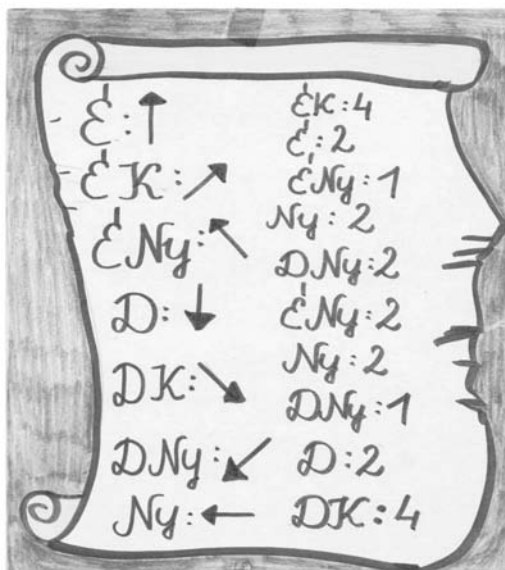 É: ↑
ÉK: ↗
ÉNy: ↖
D: ↓
DK: ↘
DNy: ↙
Ny: ←
ÉK: 4
É: 2
ÉNy: 1
Ny: 2
DNy: 2
ÉNy: 2
Ny: 2
DNy: 1
D: 2
DK: 4